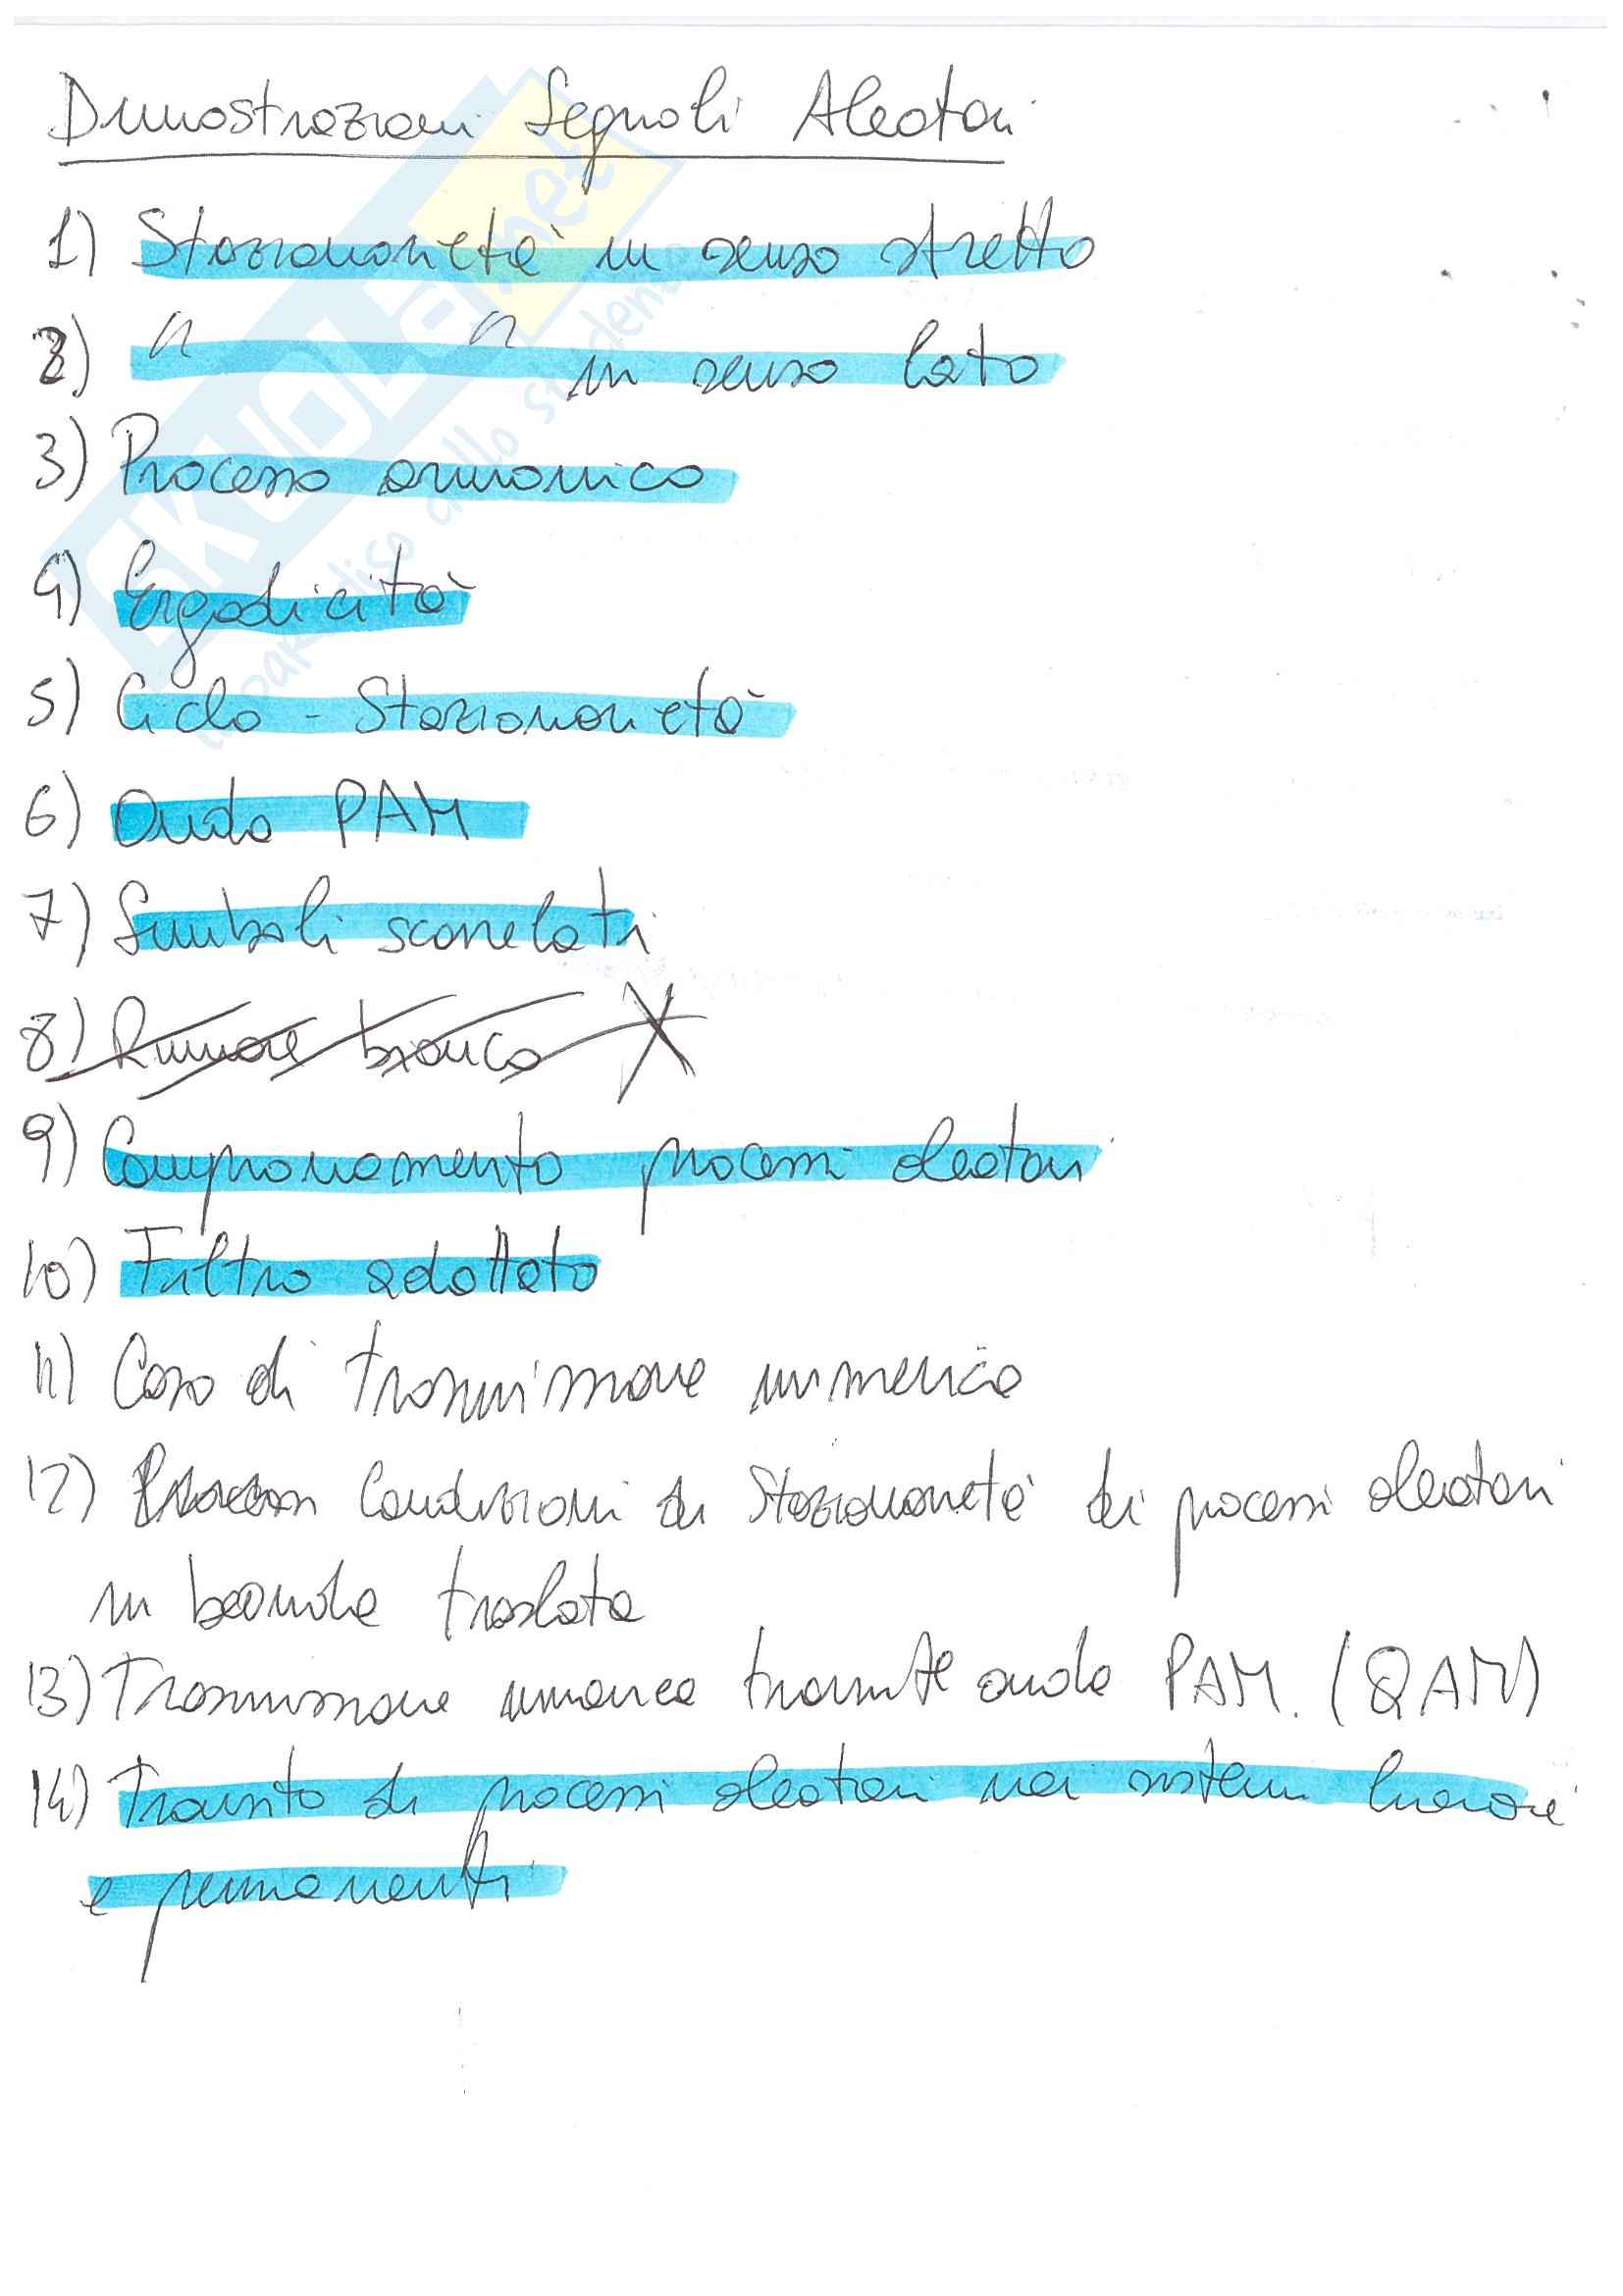 Dimostrazioni Segnali Aleatori
1) Stazionarietà in senso stretto
2) " " in senso lato
3) Processo armonico
4) Ergodicità
5) Ciclo-Stazionarietà
6) Onda PAM
7) Simboli scorrelati
8) Rumore bianco X
9) Campionamento processi aleatori
10) Filtro adattato
11) Caso di trasmissione numerica
12) Condizioni di Stazionarietà dei processi aleatori
in banda traslata
13) Trasmissione numerica tramite onda PAM. (QAM)
14) Transito di processi aleatori nei sistemi lineari
e permanenti
SKUOLA.net
il paradiso dello studente